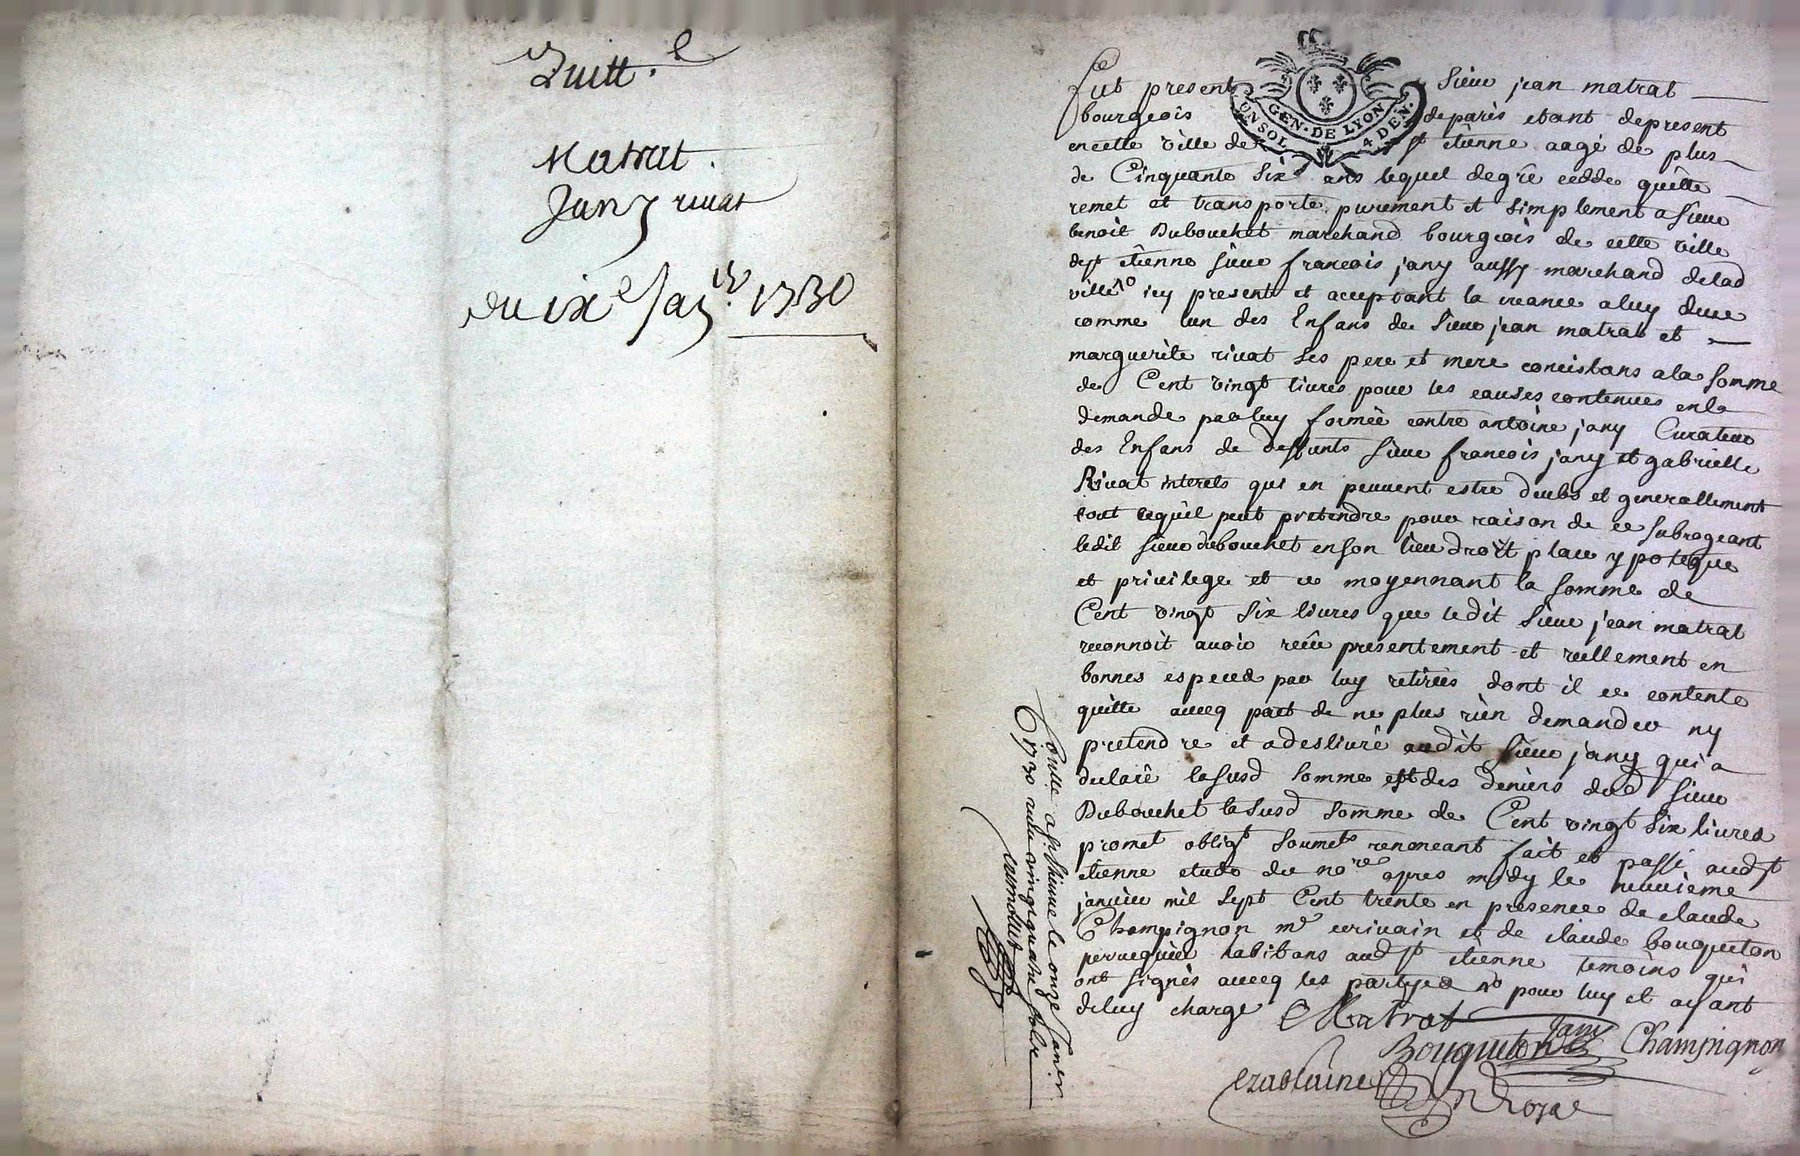 Quitt.e
Matrat.
Jany rivat
du ixe Janr. 1730
GEN. DE LYON
UN SOL 4 DEN.
fut present Sieur jean matrat
bourgeois de paris etant de present
en cette ville de st etienne aagé de plus
de Cinquante Six ans lequel de gré cedde quitte
remet et transporte purement et simplement a sieur
benoit Dubouchet marchand bourgeois de cette ville
de st etienne sieur francois jany aussy marchand de lad
ville icy present et acceptant la creance a luy deue
comme lun des Enfans de Sieur jean matrat et
marguerite rivat ses pere et mere concistans a la somme
de Cent vingt livres pour les causes contenues en la
demande par luy formée contre antoine jany Curateur
des Enfans de deffunts sieur francois jany et gabrielle
Rivat interets qui en peuvent estre deubs et generallement
tout ce quil peut pretendre pour raison de ce subrogeant
ledit sieur dubouchet en son lieu droit place ypoteque
et privilege et ce moyennant la somme de
Cent vingt six livres que ledit sieur jean matrat
reconnoit avoir reçu presentement et reellement en
bonnes especes par luy retirées dont il ce contente
quitte avecq pact de ne plus rien demander ny
pretendre et a deslivré audit sieur jany qui a
declaré la susd somme est des deniers dud sieur
Dubouchet la susd somme de Cent vingt six livres
promet oblige soumet renonceant fait et passé aud st
etienne etude du nore apres midy le neuvieme
janvier mil sept Cent trente en presence de claude
Champignon mre ecrivain et de claude bouqueton
perruquier habitans aud st etienne temoins qui
ont signés avecq les partyes pour luy et ayant
de luy charge
Matrat
jany
Bouqueton
Champignon
Conlle a st etienne le onze janer
1730 recu vingt quatre sols